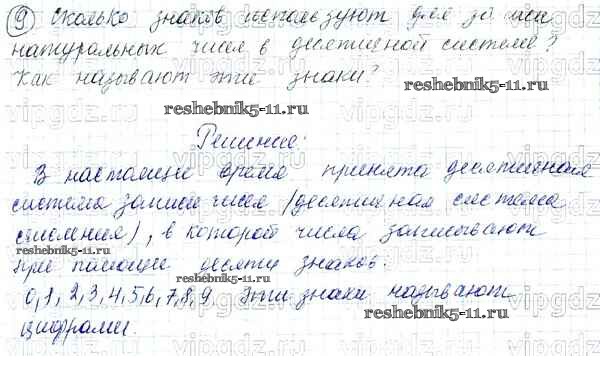 9 Сколько знаков используют для за иси
натуральных чисел в десятичной системе?
Как называют эти знаки?
reshebnik5-11.ru
reshebnik5-11.ru
Решение:
В настоящие время принята десятичная
система записи чисел (десятичная система
счисления), в которой числа записывают
reshebnik5-11.ru
при помощи десяти знаков:
0,1,2,3,4,5,6,7,8,9. Эти знаки называют
reshebnik5-11.ru
цифрами.